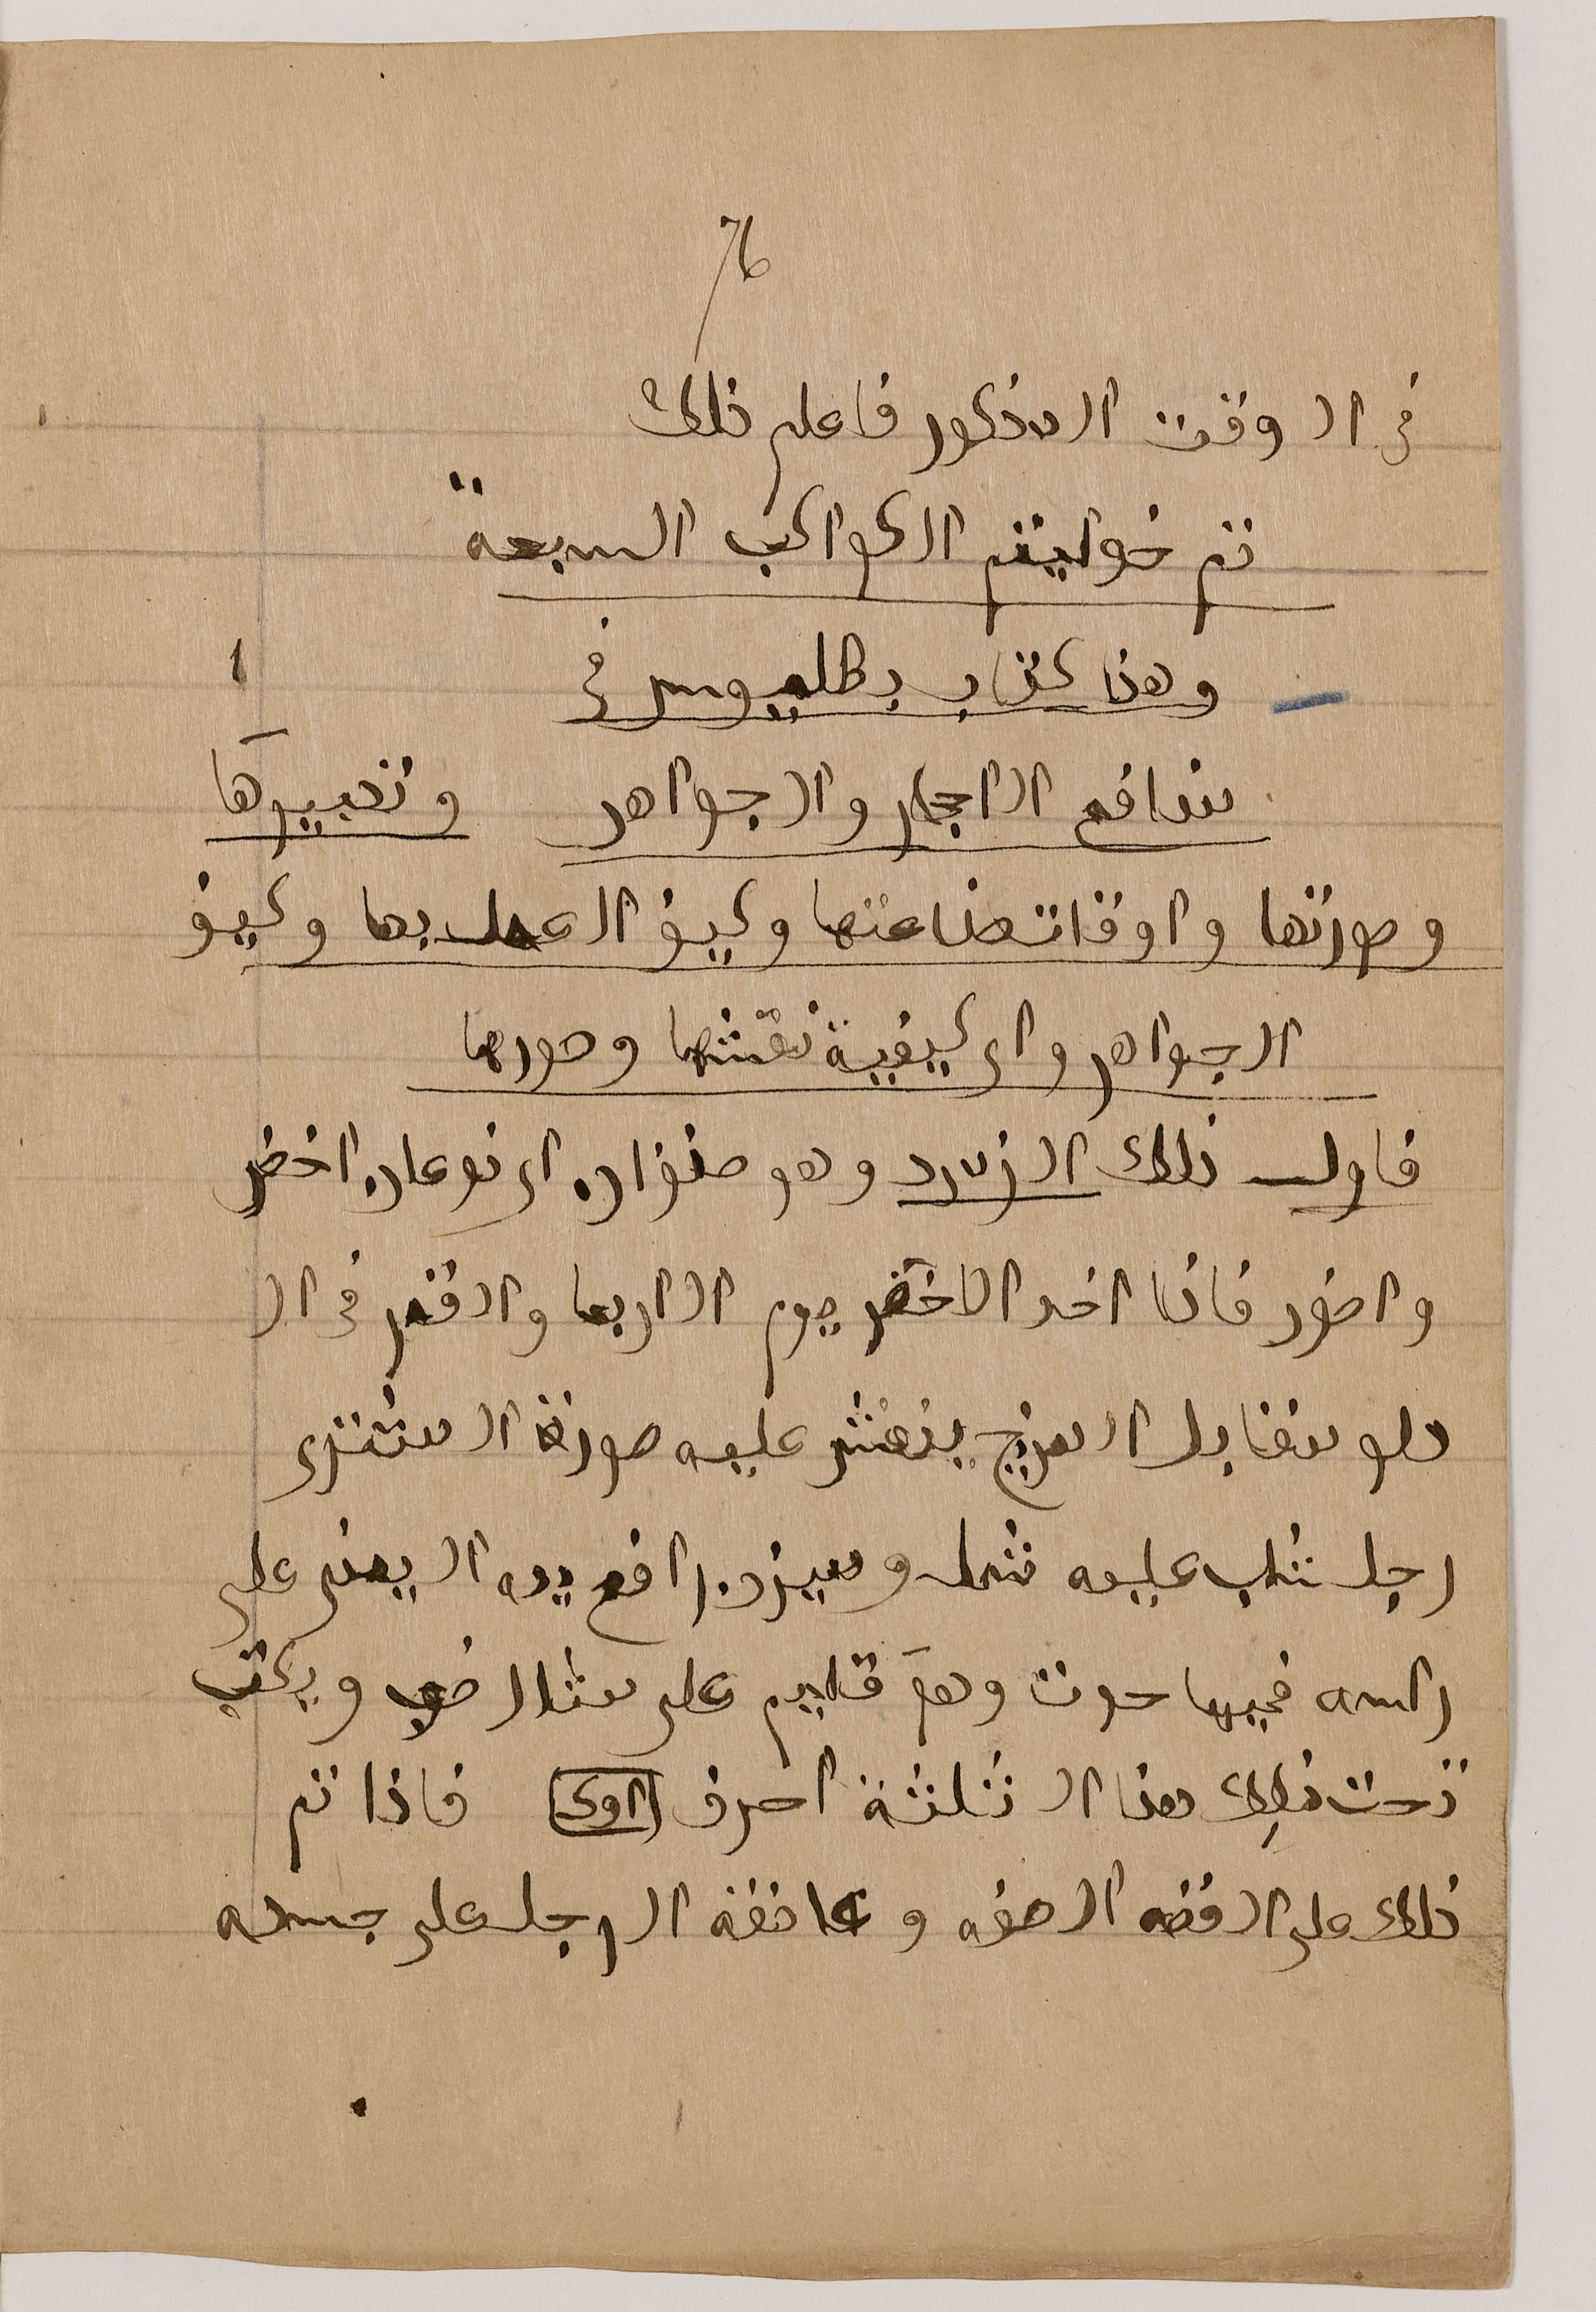 76
في الوقت المذكور فاعلم ذلك
تم خواتيم الكواكب السبعة
وهذا كتاب بطليموس في
منافع الاحجار والجواهر وتعبيرها
وصورتها واوقات صناعتها وكيف العمل بها وكيف
الجواهر واي كيفية نقشها وصورها
فاول ذلك الزمرد وهو صنفان اي نوعان اخضر
واصفر فاذا اخد الاخضر يوم الاربعا والقمر في ال
دلو مقابل المريخ ينقش عليه صورة المشترى
رجل عليه وميزر رافع يده اليمنى على
راسه فيها حوت وهو قايم على مثال ضب ويكتب
تحت ذلك هذا الثلثة احرف فاذا تم
ذلك على الفضه وعلقه الرجل على جسده